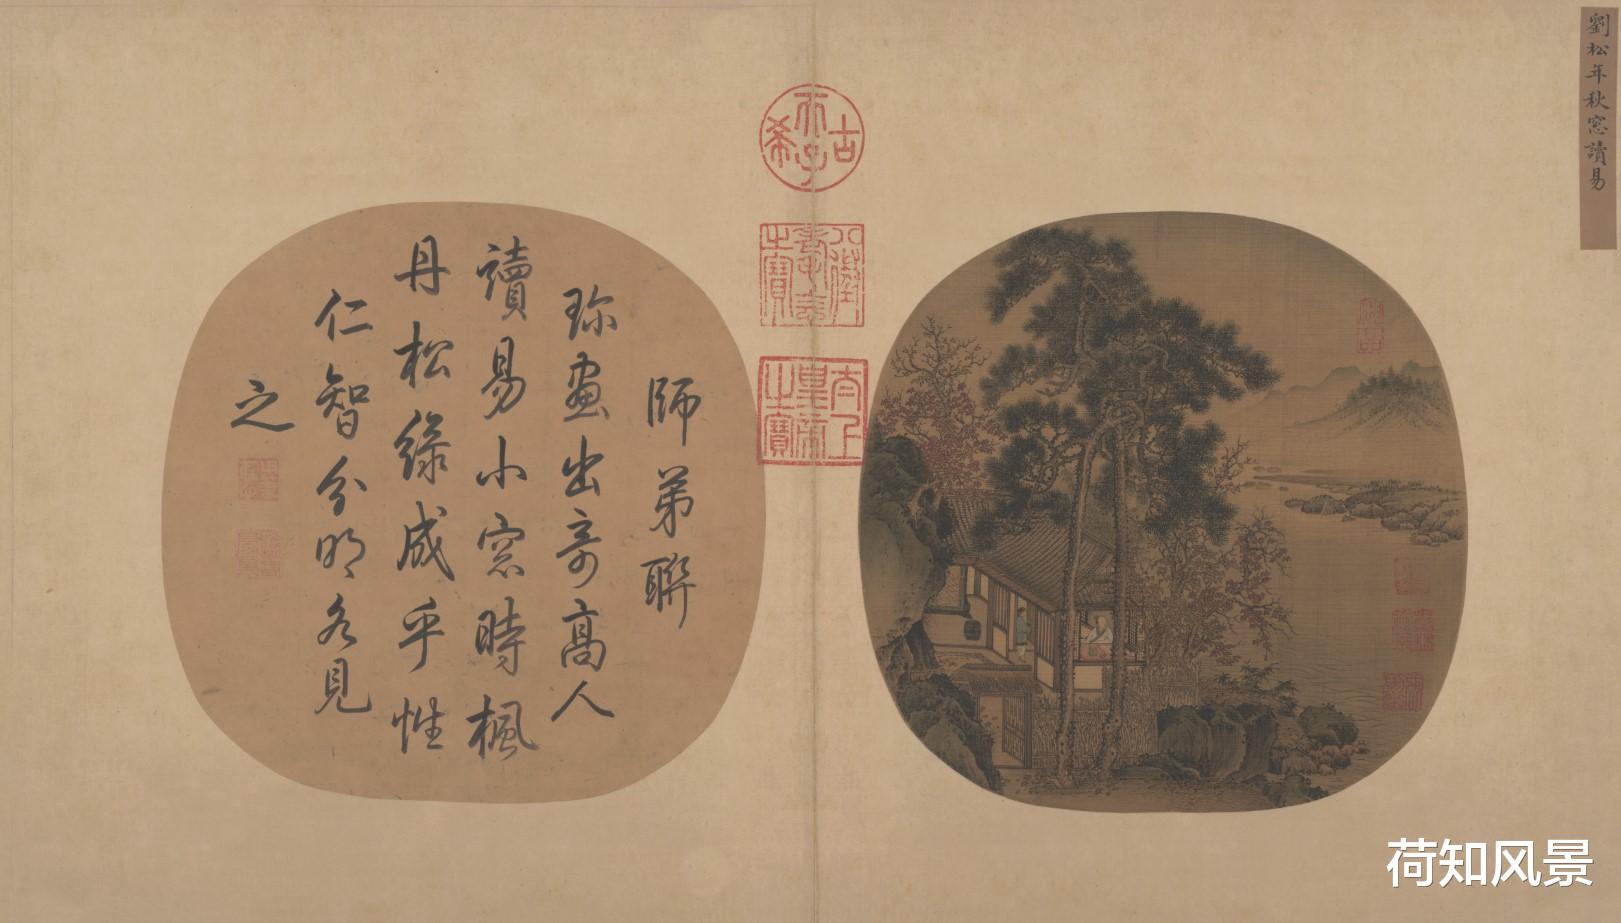 劉松年秋窓讀易
古希天子
八徵耄念之寶
太上皇帝之寶
師弟聯
珎畫出奇高人
讀易小窓時楓
丹松緑成乎性
仁智分明各見
之
荷知风景